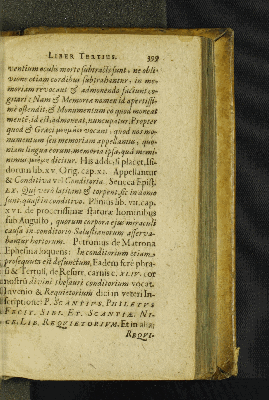 LIBER TERTIUS. 399
ventium oculis morte subtracti sunt, ne obli-
vione etiam cordibus subtrahantur, in me-
moriam revocant & admonendo faciunt co-
gitari: Nam & Memoria nomen id apertissi-
mè ostendit; & Monumentum eo quod moneat
mentē, id est, admoneat, nuncupatur. Propter
quod & Græci
vocant, quod nos mo-
numentum seu memoriam appellamus, quo-
niam lingua eorum memoria ipsa quâ memi-
nimus
dicitur. His adde, si placet, Isi-
dorum lib. xv. Orig. cap. xi. Appellantur
& Conditiva vel Conditoria. Seneca Epist.
LX. Qui verò latitant & torpent, sic in domo
sunt, quasi in conditivo. Plinius lib. vii. cap.
xvi. de procerissimæ staturæ hominibus
sub Augusto, quorum corpora ejus miraculi
causa in conditorio Salustianorum asserva-
bantur hortorum. Petronius de Matrona
Ephesina loquens: In conditorium etiam
prosequuta est defunctum, Eadem ferè phra-
si & Tertull. de Resurr. carnis c. XLIV. cor
nostrū divini thesauri conditorium vocat.
Invenio & Requietorium dici in veteri In-
scriptione: P. SCANTIUS. PHILETUS
FECIT. SIBI. ET. SCANTIÆ. NI-
CE. LIB. REQUIETORIUM. Et in alia:
REQUI-